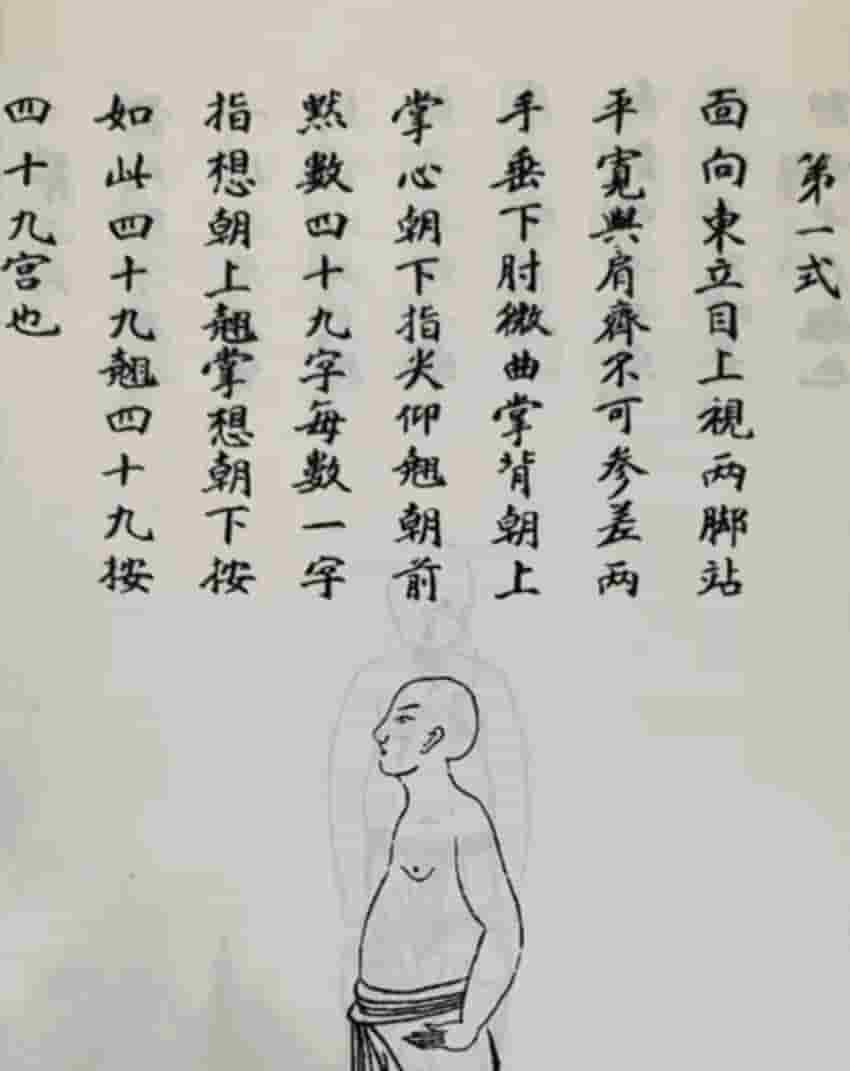 第一式
面向東立目上視两脚站
平寛與肩齊不可參差两
手垂下肘微曲掌背朝上
掌心朝下指尖仰翹朝前
黙數四十九字每數一字
指想朝上翹掌想朝下按
如此四十九翹四十九按
四十九宫也